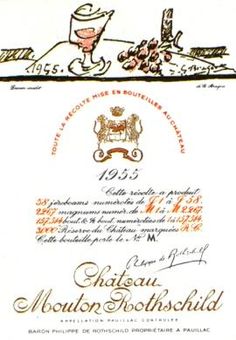 1955.
G. Braque
TOUTE LA RÉCOLTE MISE EN BOUTEILLES AU CHÂTEAU
1955
Cette récolte a produit
58 jéroboams numérotés de J 1 à J 58.
2267 magnums numér. de M 1 à M 2267.
numérotées de 1 à
3000 Réserve du Château marquées R.C.
Cette bouteille porte le No M.
Philippe de Rothschild
Château
Mouton Rothschild
APPELLATION PAUILLAC CONTROLÉE
BARON PHILIPPE DE ROTHSCHILD PROPRIÉTAIRE A PAUILLAC